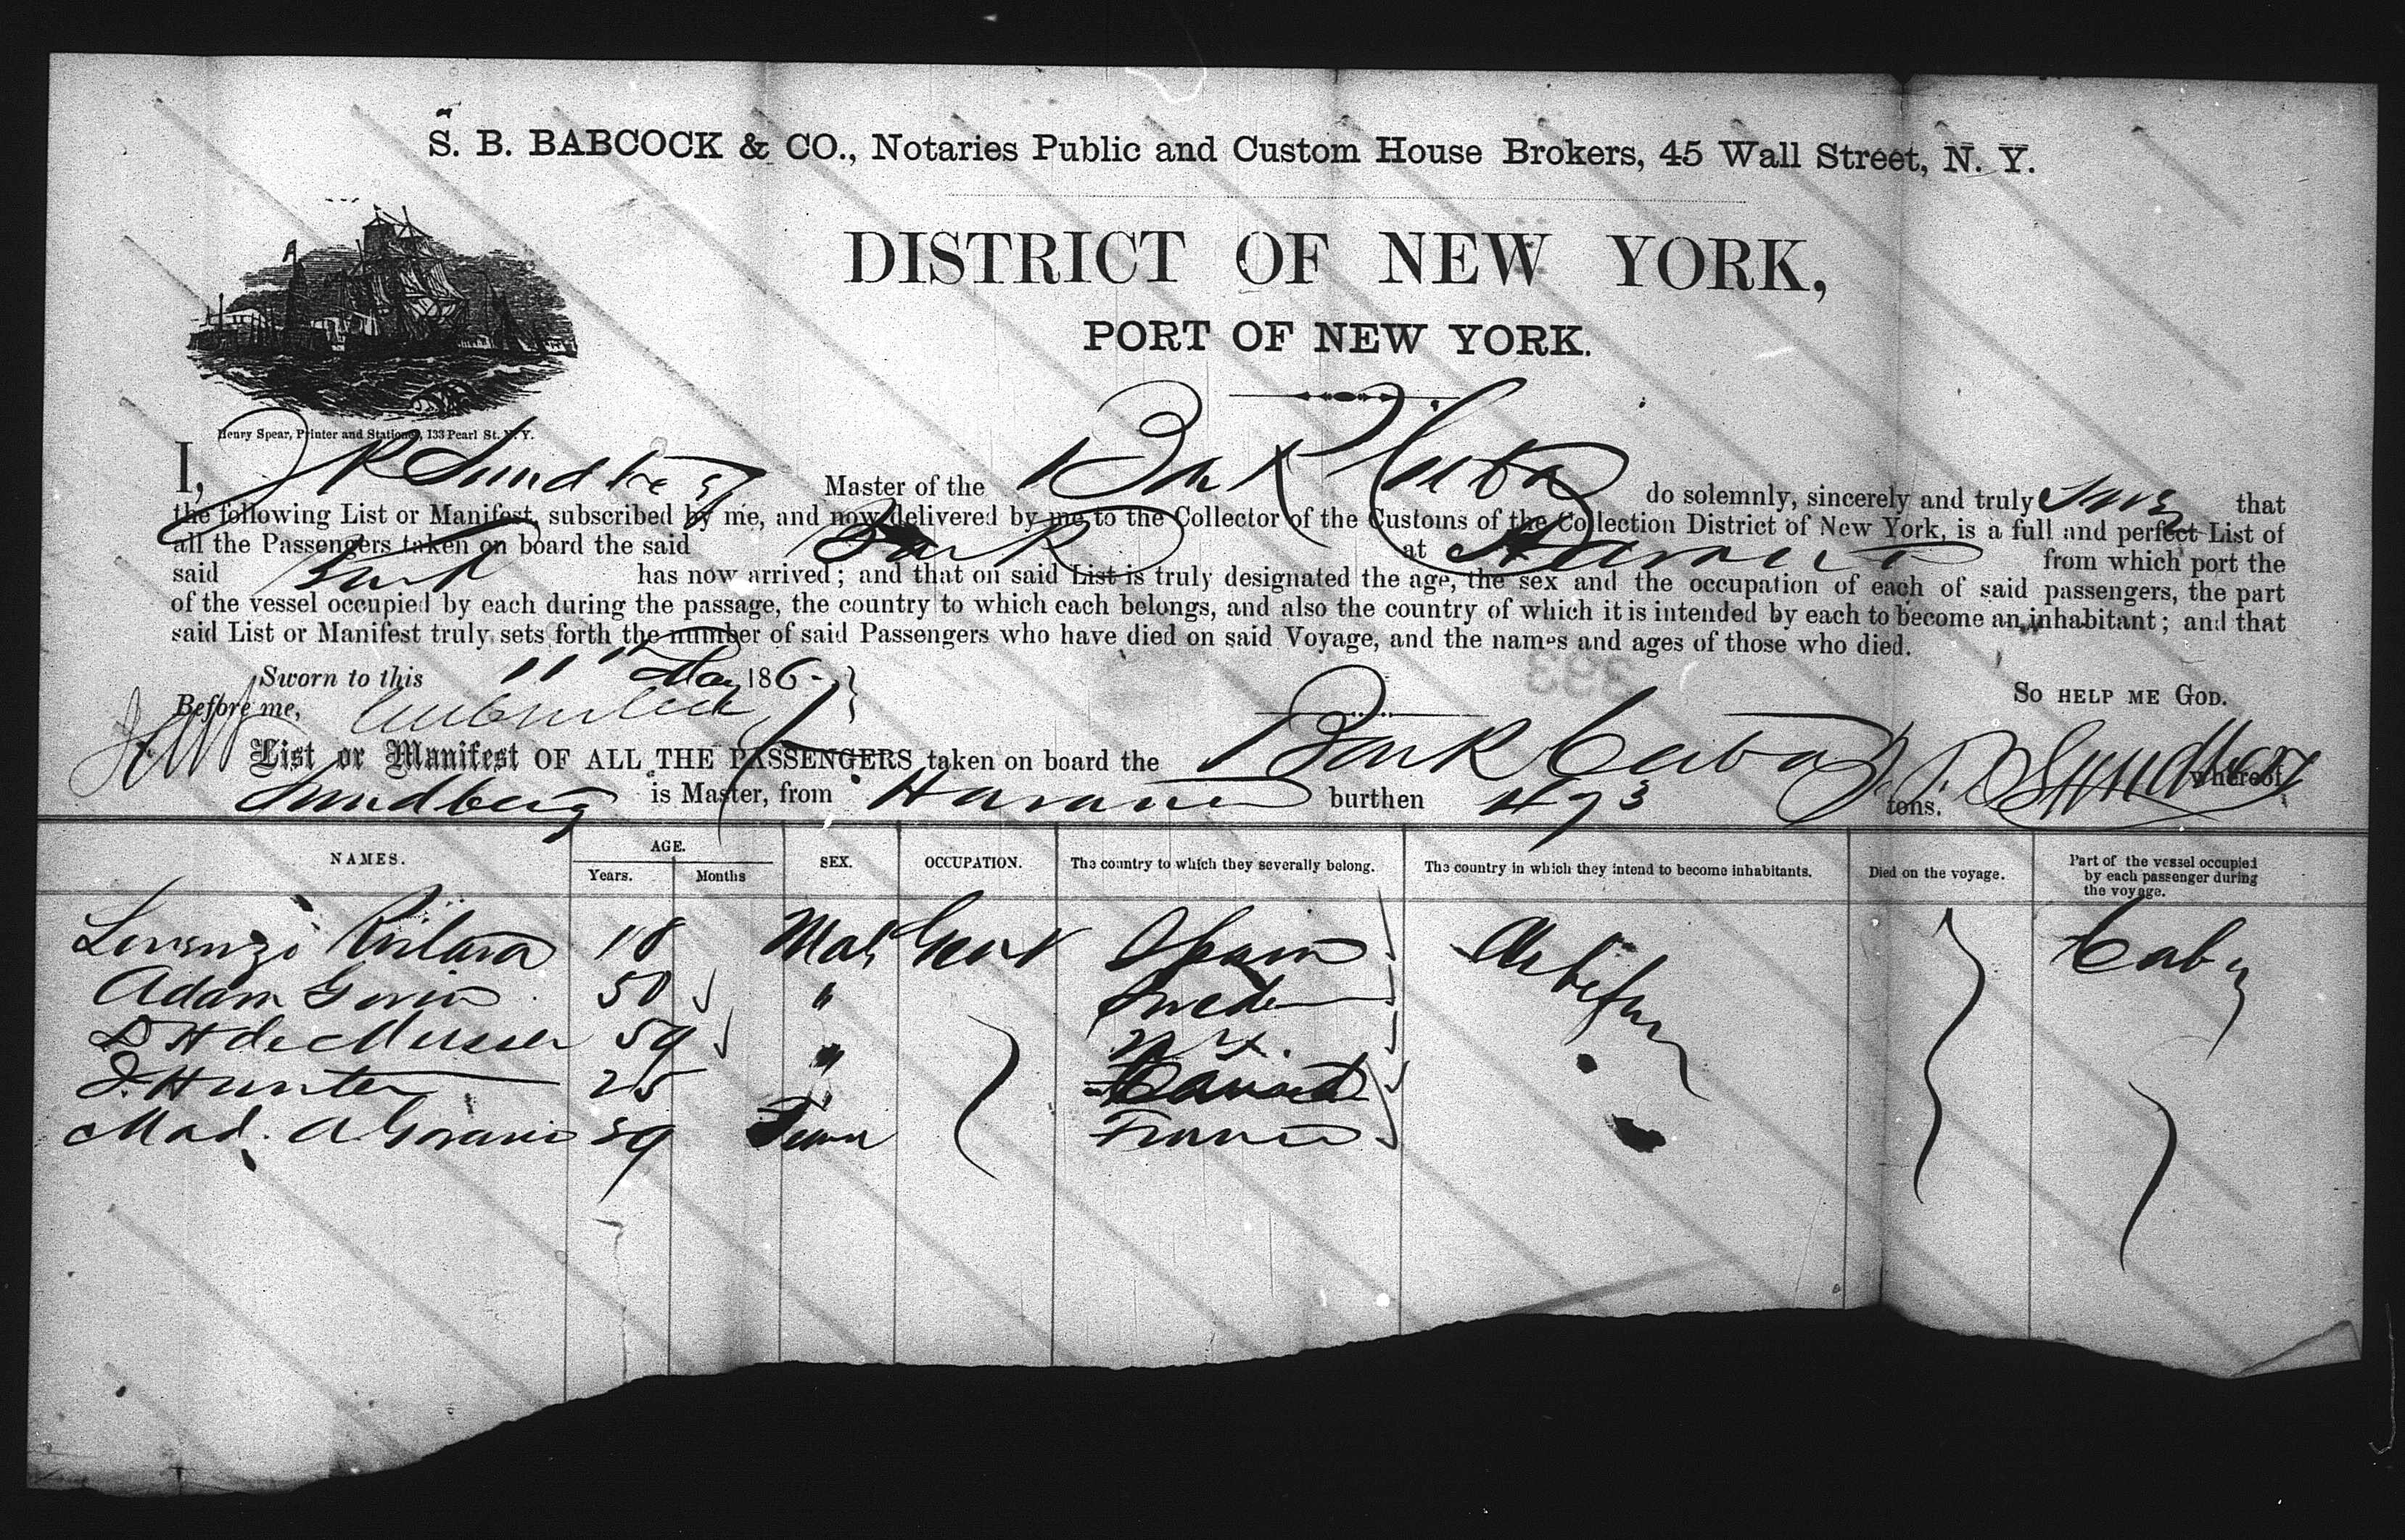 S. B. BABCOCK & CO., Notaries Public and Custom House Brokers, 45 Wall Street, N. Y.
DISTRICT OF NEW YORK,
PORT OF NEW YORK.
Henry Spear, Printer and Stationer, 133 Pearl St. N. Y.
I, J R Sundberg Master of the Bark Cuba do solemnly, sincerely and truly Swear that
the following List or Manifest, subscribed by me, and now delivered by me to the Collector of the Customs of the Collection District of New York, is a full and perfect List of
all the Passengers taken on board the said Bark at Havana from which port the
said Bark has now arrived; and that on said List is truly designated the age, the sex and the occupation of each of said passengers, the part
of the vessel occupied by each during the passage, the country to which each belongs, and also the country of which it is intended by each to become an inhabitant; and that
said List or Manifest truly sets forth the number of said Passengers who have died on said Voyage, and the names and ages of those who died.
Sworn to this 11 May 186
Before me,
393
SO HELP ME GOD.
List or Manifest OF ALL THE PASSENGERS taken on board the Bark Cuba whereof
J R Sundberg
Sundberg is Master, from Havana burthen 493 tons.
NAMES. AGE. Years. Months SEX. OCCUPATION. The country to which they severally belong. The country in which they intend to become inhabitants. Died on the voyage. Part of the vessel occupied by each passenger during the voyage.
Lorenzo 18 Male Gent Spain Cabin
Adam 50 " Sweden
D H de Musser 59 " N Y.
J. Hunter 25 "
Mad. A 39 Fem France